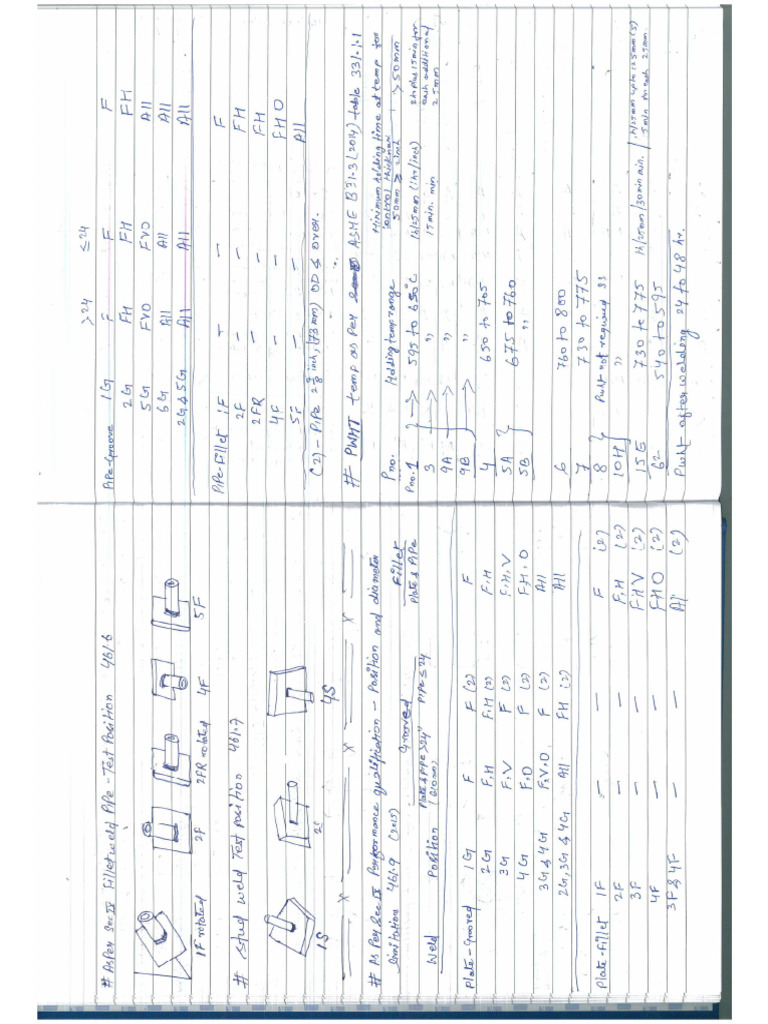 # As Per Sec IX Fillet weld Pipe - Test Position 461.6
1F rotated 2F 2FR rotated 4F 5F
# Stud weld Test Position 461.7
1S 2S 4S
# As Per Sec IX Performance qualification - Position and diameter
limitation 461.9 (2015)
Grooved Fillet
Weld Position Plate & Pipe >24" Pipe ≤ 24 Plate & Pipe
(610mm)
Plate-Grooved 1G F F (2) F
2G F,H F,H (2) F,H
3G F,V F (2) F,H,V
4G F,O F (2) F,H,O
3G & 4G F,V,O F (2) All
2G, 3G & 4G All FH (2) All
Plate-Fillet 1F — — F (2)
2F — — F,H (2)
3F — — FHV (2)
4F — — FHO (2)
3F & 4F — — All (2)
>24 ≤24
Pipe-Groove 1G F F F
2G FH FH FH
5G FVO FVO All
6G All All All
2G & 5G All All All
Pipe-Fillet 1F — — F
2F — — FH
2FR — — FH
4F — — FHO
5F — — All
(2) - Pipe 2 7/8 inch, (73mm) OD & over.
# PWHT temp as per ASME B31.3 (2014) table 331.1.1
P no. Holding temp range Minimum holding time at temp for
control thickness
50mm ≥ 2inch >50mm
P no. 1 595 to 650°C 1h/25mm (1hr/inch) 2h plus 15 min for
3 " 15 min. min each additional
9A " 25mm
9B "
4 650 to 705
5A 675 to 760
5B
6 760 to 800
7 730 to 775
8 Pwht not required
10H "
15E 730 to 775 1h/25mm/30min min. 1h/25mm up to 125mm (5)
15 min for each 25mm
62 540 to 595
Pwht after welding 24 to 48 hr.